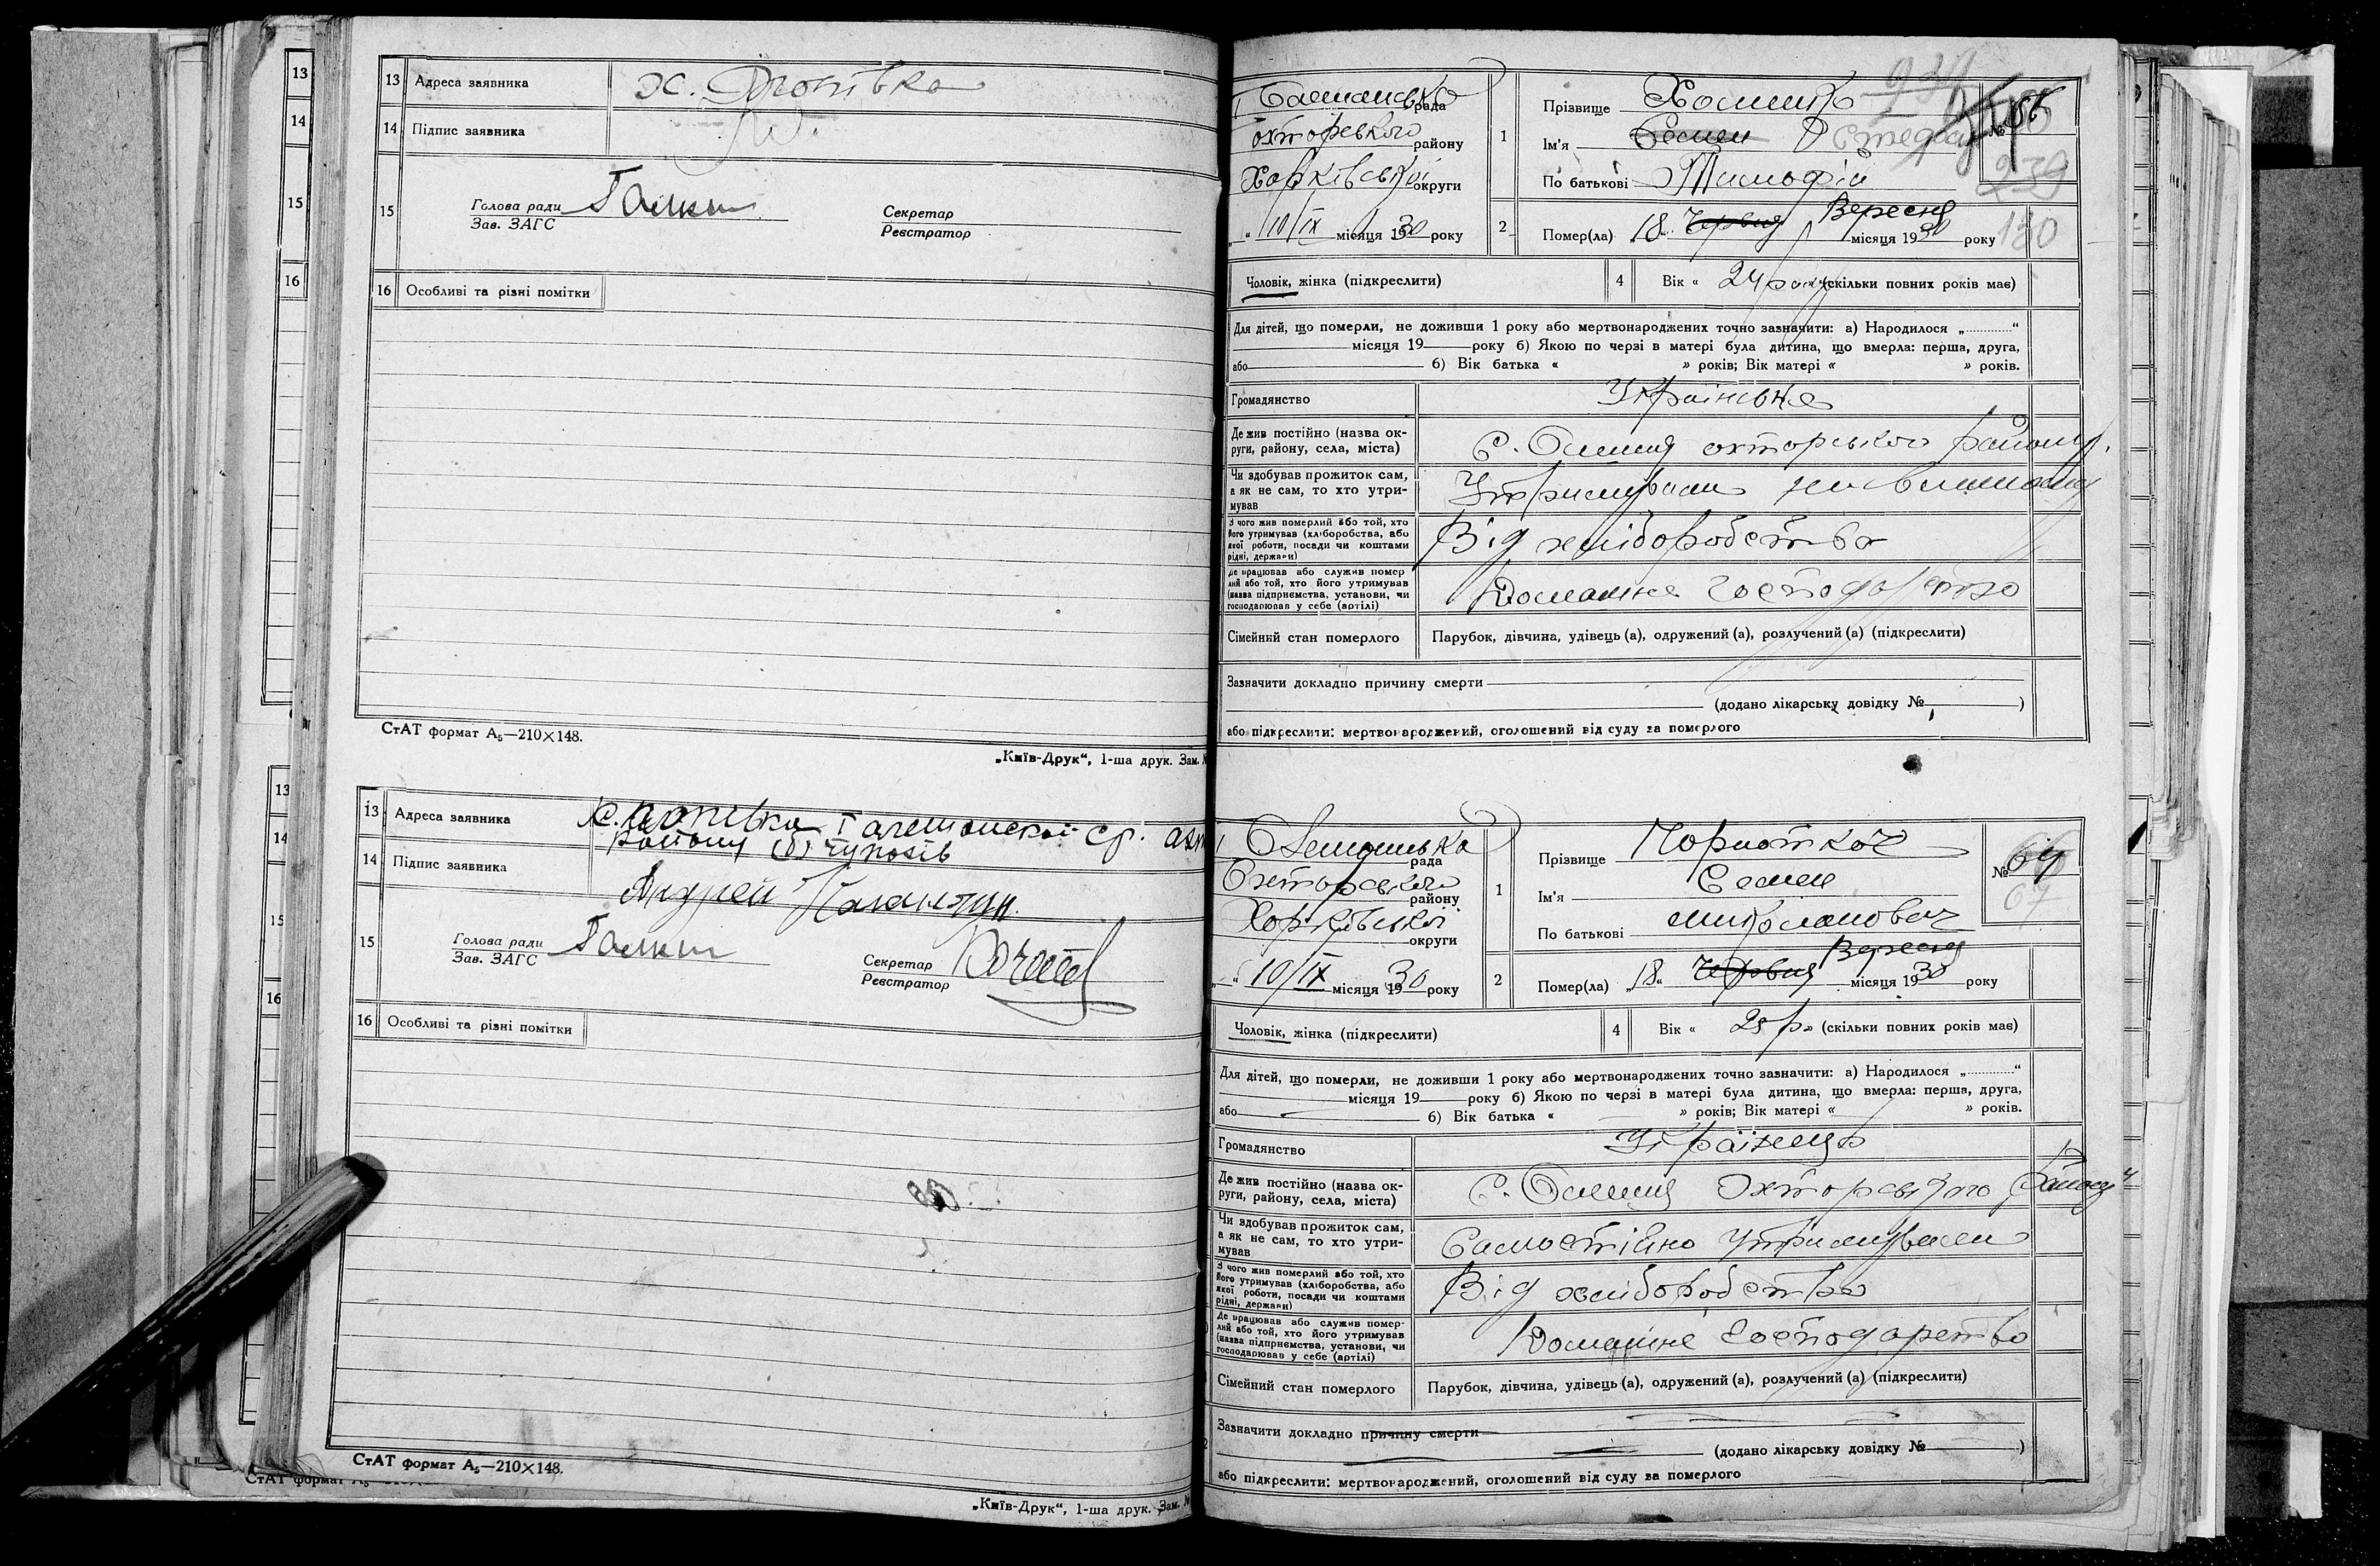 13 Адреса заявника
14 Підпис заявника
15 Голова ради Галкин Секретар
Зав. ЗАГС Реєстратор
16 Особливі та різні помітки
СтАТ формат А₅—210×148.
„Київ-Друк“, 1-ша друк. Зам. №
13 Адреса заявника
14 Підпис заявника Андрей
15 Голова ради Галкин Секретар
Зав. ЗАГС Реєстратор
16 Особливі та різні помітки
СтАТ формат А₅—210×148.
„Київ-Друк“, 1-ша друк. Зам. №
рада
району
Харківської округи
„ “ 10/IX місяця 1930 року
1 Прізвище
Ім'я Семен Степан
По батькові Тимофій
№
239
130
2 Помер(ла) „18“ Червня Вересня місяця 1930 року
Чоловік, жінка (підкреслити)
4 Вік « 24 роки (скільки повних років має)
Для дітей, що померли, не доживши 1 року або мертвонароджених точно зазначити: а) Народилося „ “
місяця 19 року б) Якою по черзі в матері була дитина, що вмерла: перша, друга,
або б) Вік батька « » років; Вік матері « » років.
Громадянство
Де жив постійно (назва ок-
руги, району, села, міста)
с. Олешня охторського району.
Чи здобував прожиток сам,
а як не сам, то хто утри-
мував
З чого жив померлий або той, хто
його утримував (хліборобства, або
якої роботи, посади чи коштами
рідні, держави)
Від хліборобства
Де працював або служив помер
лий або той, хто його утримував
(назва підприємства, установи, чи
господарював у себе (артілі)
Домашнє господарство
Сімейний стан померлого Парубок, дівчина, удівець (а), одружений (а), розлучений (а) (підкреслити)
Зазначити докладно причину смерти
(додано лікарську довідку № )
або підкреслити: мертвонароджений, оголошений від суду за померлого
рада
Охторського району
Харківської округи
„ “ 10/IX місяця 1930 року
1 Прізвище
Ім'я Семен
По батькові
№ 67
67
2 Помер(ла) „18“ Червня Вересня місяця 1930 року
Чоловік, жінка (підкреслити)
4 Вік « р. (скільки повних років має)
Для дітей, що померли, не доживши 1 року або мертвонароджених точно зазначити: а) Народилося „ “
місяця 19 року б) Якою по черзі в матері була дитина, що вмерла: перша, друга,
або б) Вік батька « » років; Вік матері « » років.
Громадянство Українець
Де жив постійно (назва ок-
руги, району, села, міста)
с. Олешня Охторського району
Чи здобував прожиток сам,
а як не сам, то хто утри-
мував
Самостійно
З чого жив померлий або той, хто
його утримував (хліборобства, або
якої роботи, посади чи коштами
рідні, держави)
Від хліборобства
Де працював або служив помер-
лий або той, хто його утримував
(назва підприємства, установи, чи
господарював у себе (артілі)
Домашнє господарство
Сімейний стан померлого Парубок, дівчина, удівець (а), одружений (а), розлучений (а) (підкреслити)
Зазначити докладно причину смерти
(додано лікарську довідку № )
або підкреслити: мертвонароджений, оголошений від суду за померлого